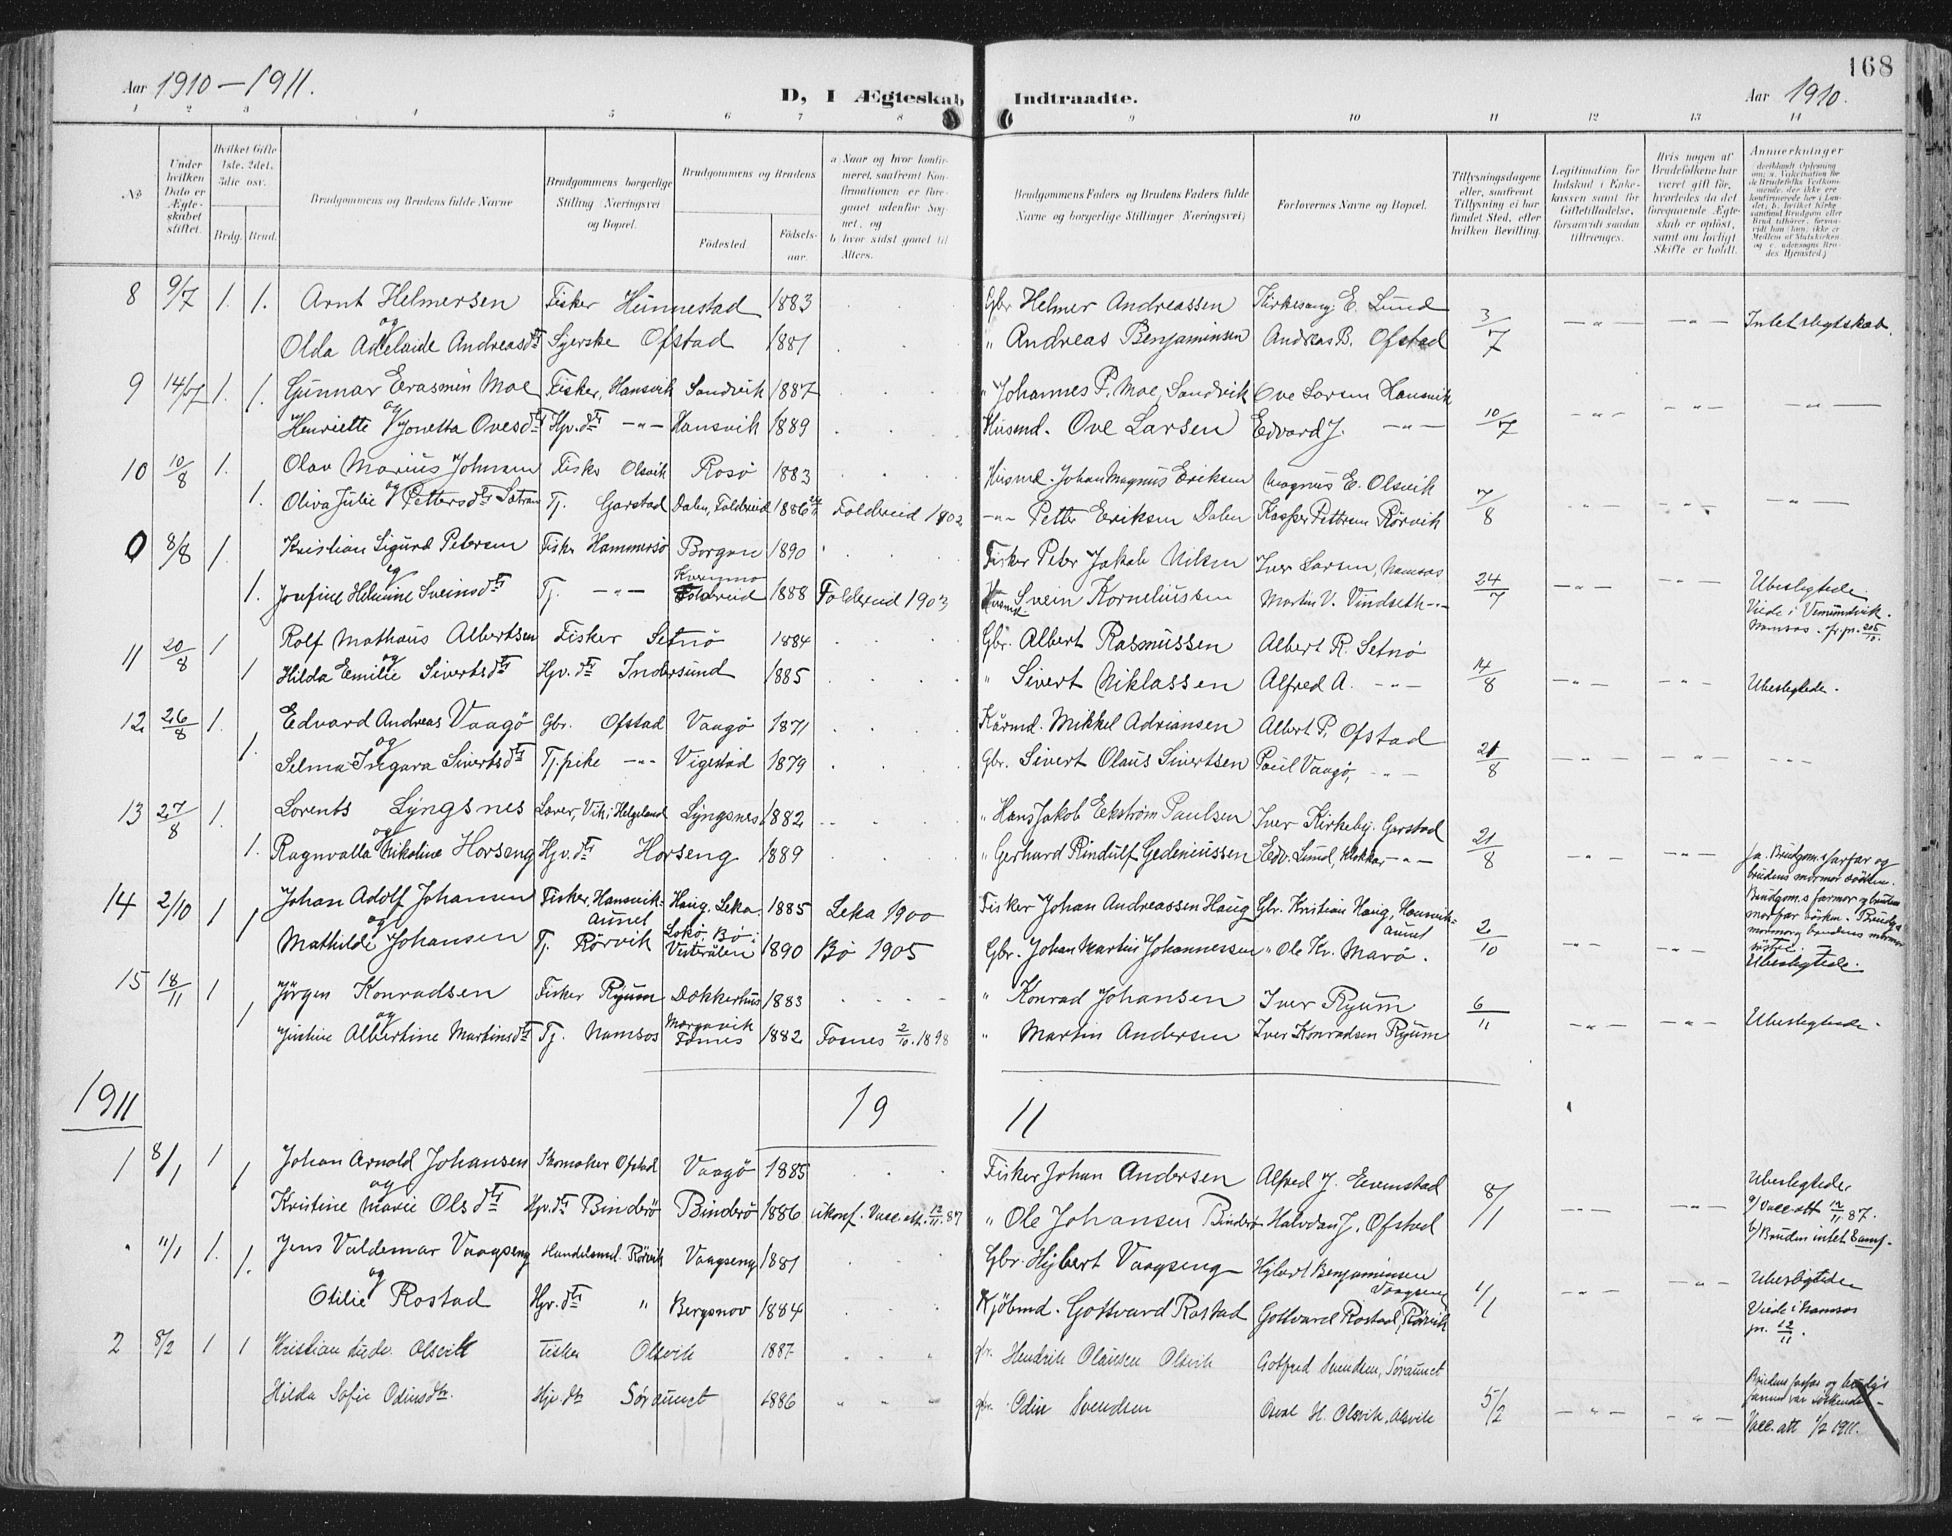 168
Aar 1910 – 1911.
D, I Ægteskab Indtraadte.
Aar 1910.
1 2 3 4 5 6 7 8 9 10 11 12 13 14
No
Under hvilken Dato er Ægteskabet stiftet.
Hvilket Gifte 1ste, 2det, 3die osv.
Brdg. Brud.
Brudgommens og Brudens fulde Navne
Brudgommens borgerlige Stilling Næringsvei og Bopæl.
Brudgommens og Brudens
Fødested.
Fødselsaar.
a Naar og hvor konfirmeret, saafremt Konfirmationen er foregaaet udenfor Sognet, og
b hvor sidst gaaet til Alters.
Brudgommens Faders og Brudens Faders fulde Navne og borgerlige Stillinger Næringsvei,
Forlovernes Navne og Bopæl.
Tillysningsdagene eller, saafremt Tillysning ei har fundet Sted, efter hvilken Bevilling.
Legitimation for Indskud i Enkekassen samt for Giftetilladelse, forsaavidt saadan tiltrænges.
Hvis nogen af Brudefolkene har været gift før, hvorledes da det foregaaende Ægteskab er opløst, samt om lovligt Skifte er holdt.
Anmærkninger
8 9/7 1. 1. Arnt Helmersen Fisker Hunnestad 1883 Gbr Helmer Andreassen Kirkesang. E. Lund 3/7 Intet slegtskab.
og
Olda Adelaide Andreasdtr Syerske Ofstad 1881 " Andreas Benjaminsen Andreas B. Ofstad
9 14/7 1. 1. Gunnar Erasmin Moe Fisker, Hansvik Sandvik 1887 " Johannes P. Moe, Sandvik Ove Larsen Hansvik 10/7
og
Henriette Jonetta Ovesdtr Hjv. dtr -"- Hansvik 1889 Husmd. Ove Larsen Edvard J. -"-
10 10/8 1. Olav Marius Johnsen Fisker Olsvik Rosø 1883 Husmd. Johan Magnus Eriksen Magnus E. Olsvik 7/8
og
1. Oliva Julie Pettersdtr Sætran Tj. Garstad Dalen, Foldereid 1886 Foldereid 1902 -"- Petter Eriksen Dalen Kasper Pettersen Rørvik
0 8/8 1. Kristian Sigurd Petersen Fisker Hammersø Borgan 1890 Fisker Peter Jakob Nilsen Iver Larsen, Namsos 24/7
og
1. Josefine Helmine Sveinsdtr Tj. -"- Foldereid 1888 Foldereid 1903 Svein Korneliussen Martin V. Vindseth -"- Ubeslegtede Viede i Vemundvik. Namsos
11 20/8 1 Rolf Mathæus Albertsen Fisker Setnø 1884 Gbr. Albert Rasmussen Albert R. Setnø 14/8
og
1 Hilda Emilie Sivertsdtr Hjv. dtr Indersund 1885 " Sivert Niklassen Alfred A. -"- Ubeslegtede.
12 26/8 1. Edvard Andreas Vaagø Gbr. Ofstad Vaagø 1871 Kaarmd. Mikkel Adriansen Albert P. Ofstad 21/8
og
1. Selma Ingara Sivertsdtr Tj.pike -"- Vigestad 1879 Gbr. Sivert Olaus Sivertsen Paul Vaagø, -"-
13 27/8 1. Lorents Lyngsnes Lærer, Vik i Helgeland Lyngsnes 1882 " Hans Jakob Ekstrøm Paulsen Iver Kirkeby. Garstad 21/8
og
1. Ragnvalla Nikoline Horseng Hjv. dtr Horseng 1889 " Gerhard Rindulf Gedeniussen Edv. Lund, Klokker -"- Ja. Brudgom.s farfar og brudens mormor søsken.
14 2/10 1 1 Johan Adolf Johansen Fisker, Hansvik-aunet Haug, Leka. 1885 Leka 1900 Fisker Johan Andreassen Haug Gbr. Kristian Haug, Hansvik-aunet 2/10
og
Mathilde Johansen Tj. Rørvik Lokø Bø i Vesterålen 1890 Bø 1905 Gbr. Johan Martin Johannessen " Ole Kr. Marø. Ubeslegtede.
15 18/11 1 Jørgen Konradsen Fisker Ryum Dokkerhus 1883 " Konrad Johansen Iver Ryum 6/11
og
1 Justine Albertine Martinsdtr Tj. Namsos Morgavik Fosnes 1882 Fosnes 2/10.1898 " Martin Andersen Iver Konradsen Ryum Ubeslegtede.
1911 19 11
1 8/1 1 1 Johan Arnold Johansen Skomaker Ofstad Vaagø 1885 Fisker Johan Andersen Alfred J. Evenstad 8/1 Ubeslegtede
og
Kristine Marie Olsdtr Hjv. dtr Binderø Binderø 1886 ukonf. Vacc.att. 12/11.87 " Ole Johansen Binderø Halvdan J. Ofstad a) Vacc att 12/11 87. b) Bruden intet Samf-
" 11/1 1. 1. Jens Valdemar Vaagseng Handelsmd. Rørvik Vaagseng 1881 Gbr. Hybert Vaagseng Hybert Benjaminsen Vaagseng 1/1 Ubeslegtede
og
Otilie Rostad Hjv. dtr " Bergsnov 1884 Kjøbmd. Gottvard Rostad Gottvard Rostad, Rørvik Viede i Namsos
2 8/2 1 1 Kristian Olsvik Fisker Olsvik 1887 gbr. Hendrik Olausen Olsvik Gotfred Svendsen, Søraunet 5/2
Hilda Sofie Odinsdtr. Hjv. dtr Søraunet 1886 gbr. Odin Svendsen Oscar H. Olsvik, Olsvik Vacc. att 1/2 1911.